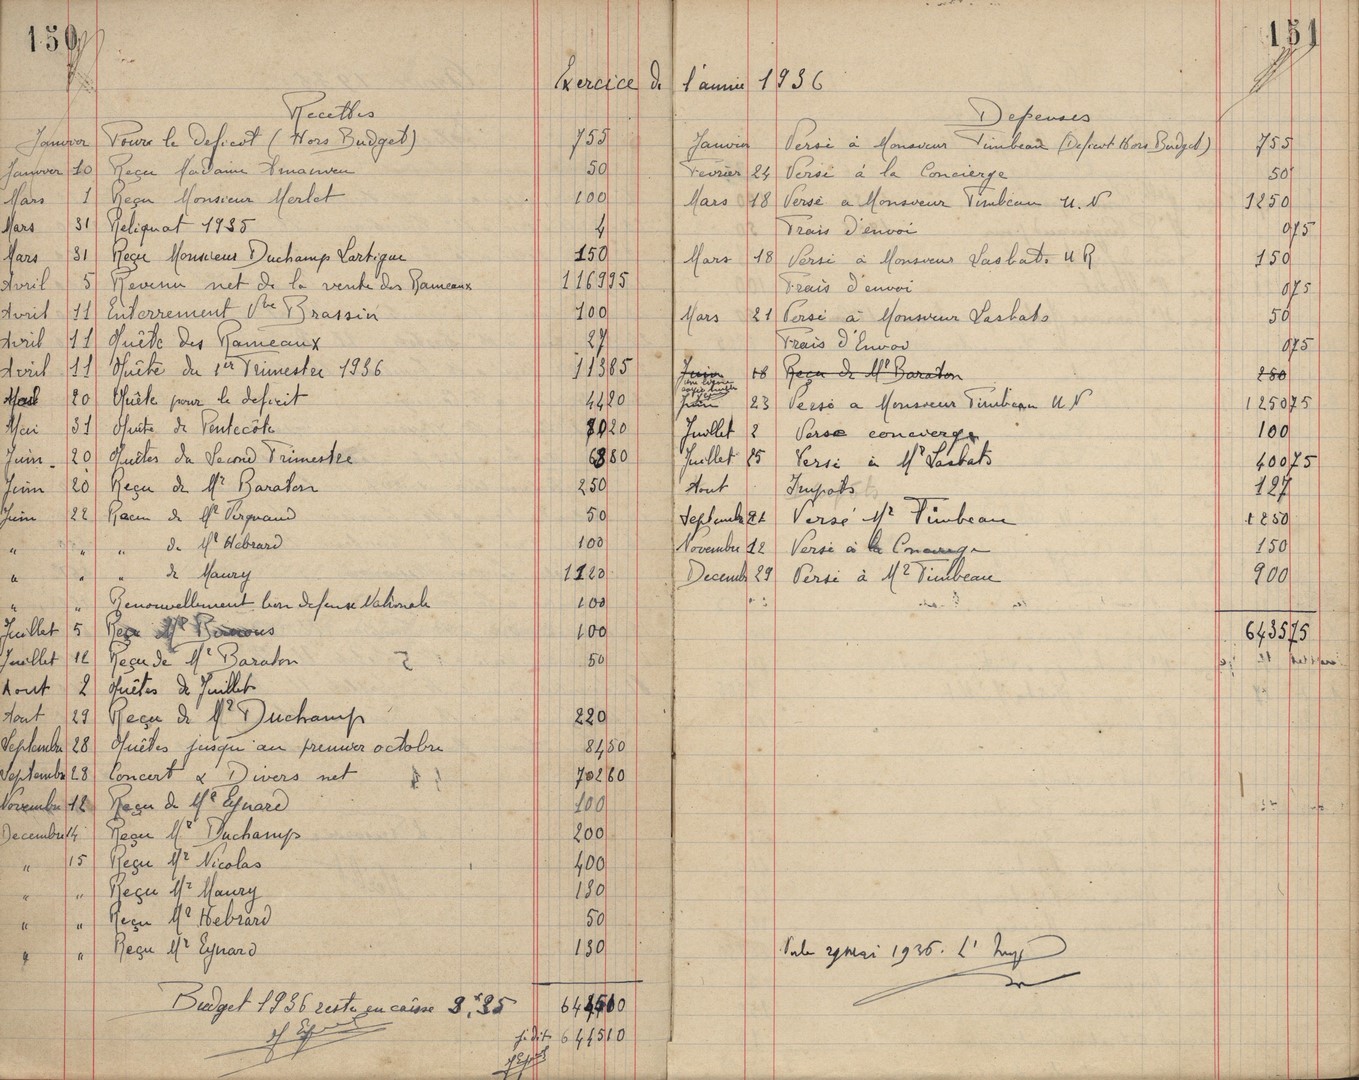 150
Exercice de
Recettes
Janvier Pour le Deficit (Hors Budget) 755
Janvier 10 Reçu Madame 50
Mars 1 Reçu Monsieur Merlet 100
Mars 31 Reliquat 1935 4
Mars 31 Reçu Monsieur Duchamp Lartigue 150
Avril 5 Revenu net de la vente des Rameaux 116995
Avril 11 Enterrement Vve Brassin 100
Avril 11 Quête des Rameaux 27
Avril 11 Quête du 1er Trimestre 1936 11385
20 Quête pour le deficit 4420
Mai 31 Quête de Pentecôte 20
Juin 20 Quêtes du Second Trimestre 80
Juin 20 Reçu de Mr Baraton 250
Juin 22 Recu de Mr 50
" " " de Mr Hebrard 100
" " " de Maury 1120
" " Renouvellement bon defense Nationale 100
Juillet 5 Reçu Mr 100
Juillet 12 Reçu de Mr Baraton 50
Aout 2 Quêtes de Juillet
Aout 29 Reçu de Mr Duchamp 220
Septembre 28 Quêtes jusqu'au premier octobre 8450
Septembre 28 Concert & Divers net 70260
Novembre 12 Reçu de Mr Eynard 100
Decembre 14 Reçu Mr Duchamp 200
" 15 Reçu Mr Nicolas 400
" " Reçu Mr Maury 130
" " Reçu Mr Hebrard 50
" " Reçu Mr Eynard 130
Budget 1936 reste en caisse
je dis 644510
151
l'année 1936
Depenses
Janvier Versé à Monsieur Timbeau (Deficit Hors Budget) 755
Fevrier 24 Versé à la Concierge 50
Mars 18 Versé a Monsieur Timbeau U.N 1250
Frais d'envoi 075
Mars 18 Versé à Monsieur Lasbats U R 150
Frais d'envoi 075
Mars 21 Versé à Monsieur Lasbats 50
Frais d'Envoi 075
Juin 18 Reçu de Mr Baraton 250
Juin 23 Versé a Monsieur Timbeau U N 125075
Juillet 2 Versé concierge 100
Juillet 25 Versé à Mr Lasbats 40075
Aout Impots 127
Septembre 21 Versé Mr Timbeau 1250
Novembre 12 Versé à la Concierge 150
Decemb 29 Versé à Mr Timbeau 900
643575
mai 1936. L'